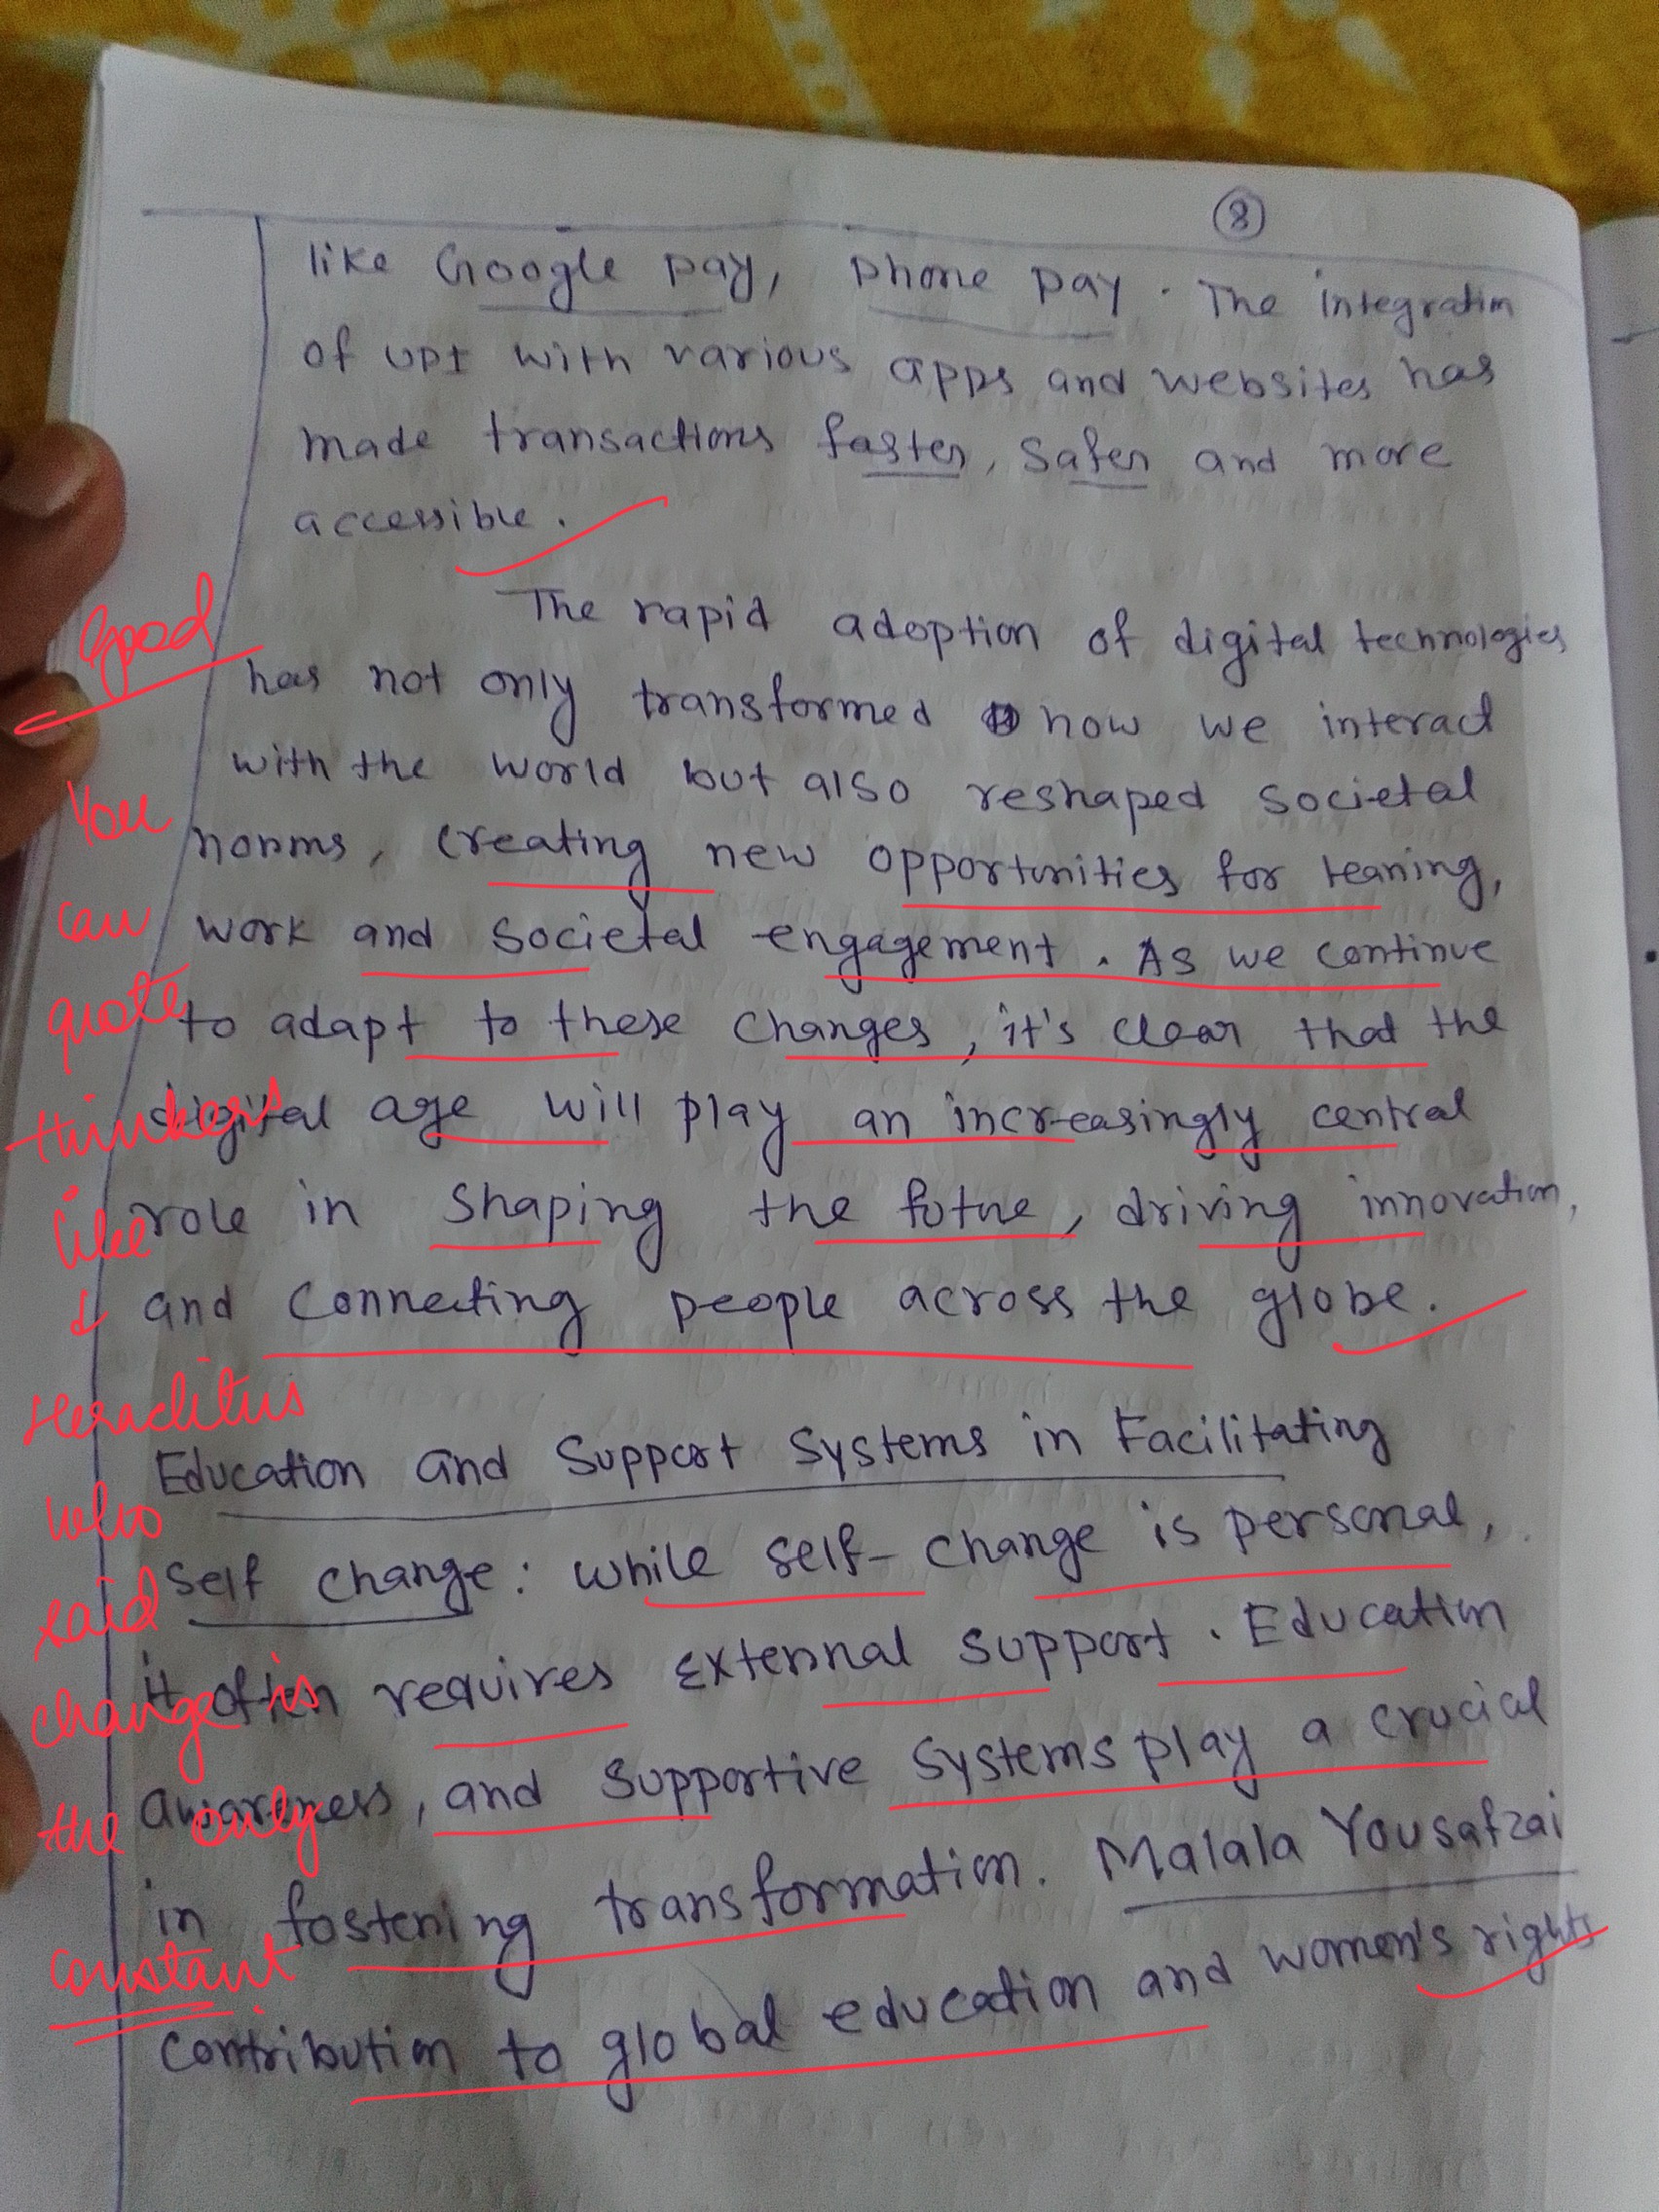 8
like Google Pay, Phone Pay. The integration
of UPI with various apps and websites has
made transactions faster, safer and more
accessible.
The rapid adoption of digital technologies
has not only transformed how we interact
with the world but also reshaped societal
norms, creating new opportunities for leaning,
work and societal engagement. As we continue
to adapt to these changes, it's clear that the
digital age will play an increasingly central
role in shaping the future, driving innovation,
and connecting people across the globe.
Education and Support Systems in Facilitating
Self change: while self-change is personal,
it often requires external support. Education
awareness, and supportive systems play a crucial
in fostering transformation. Malala Yousafzai
contribution to global education and women's rights
Good
You
can
quote
thinkers
like
Heraclitus
who
said
change is
the only
constant